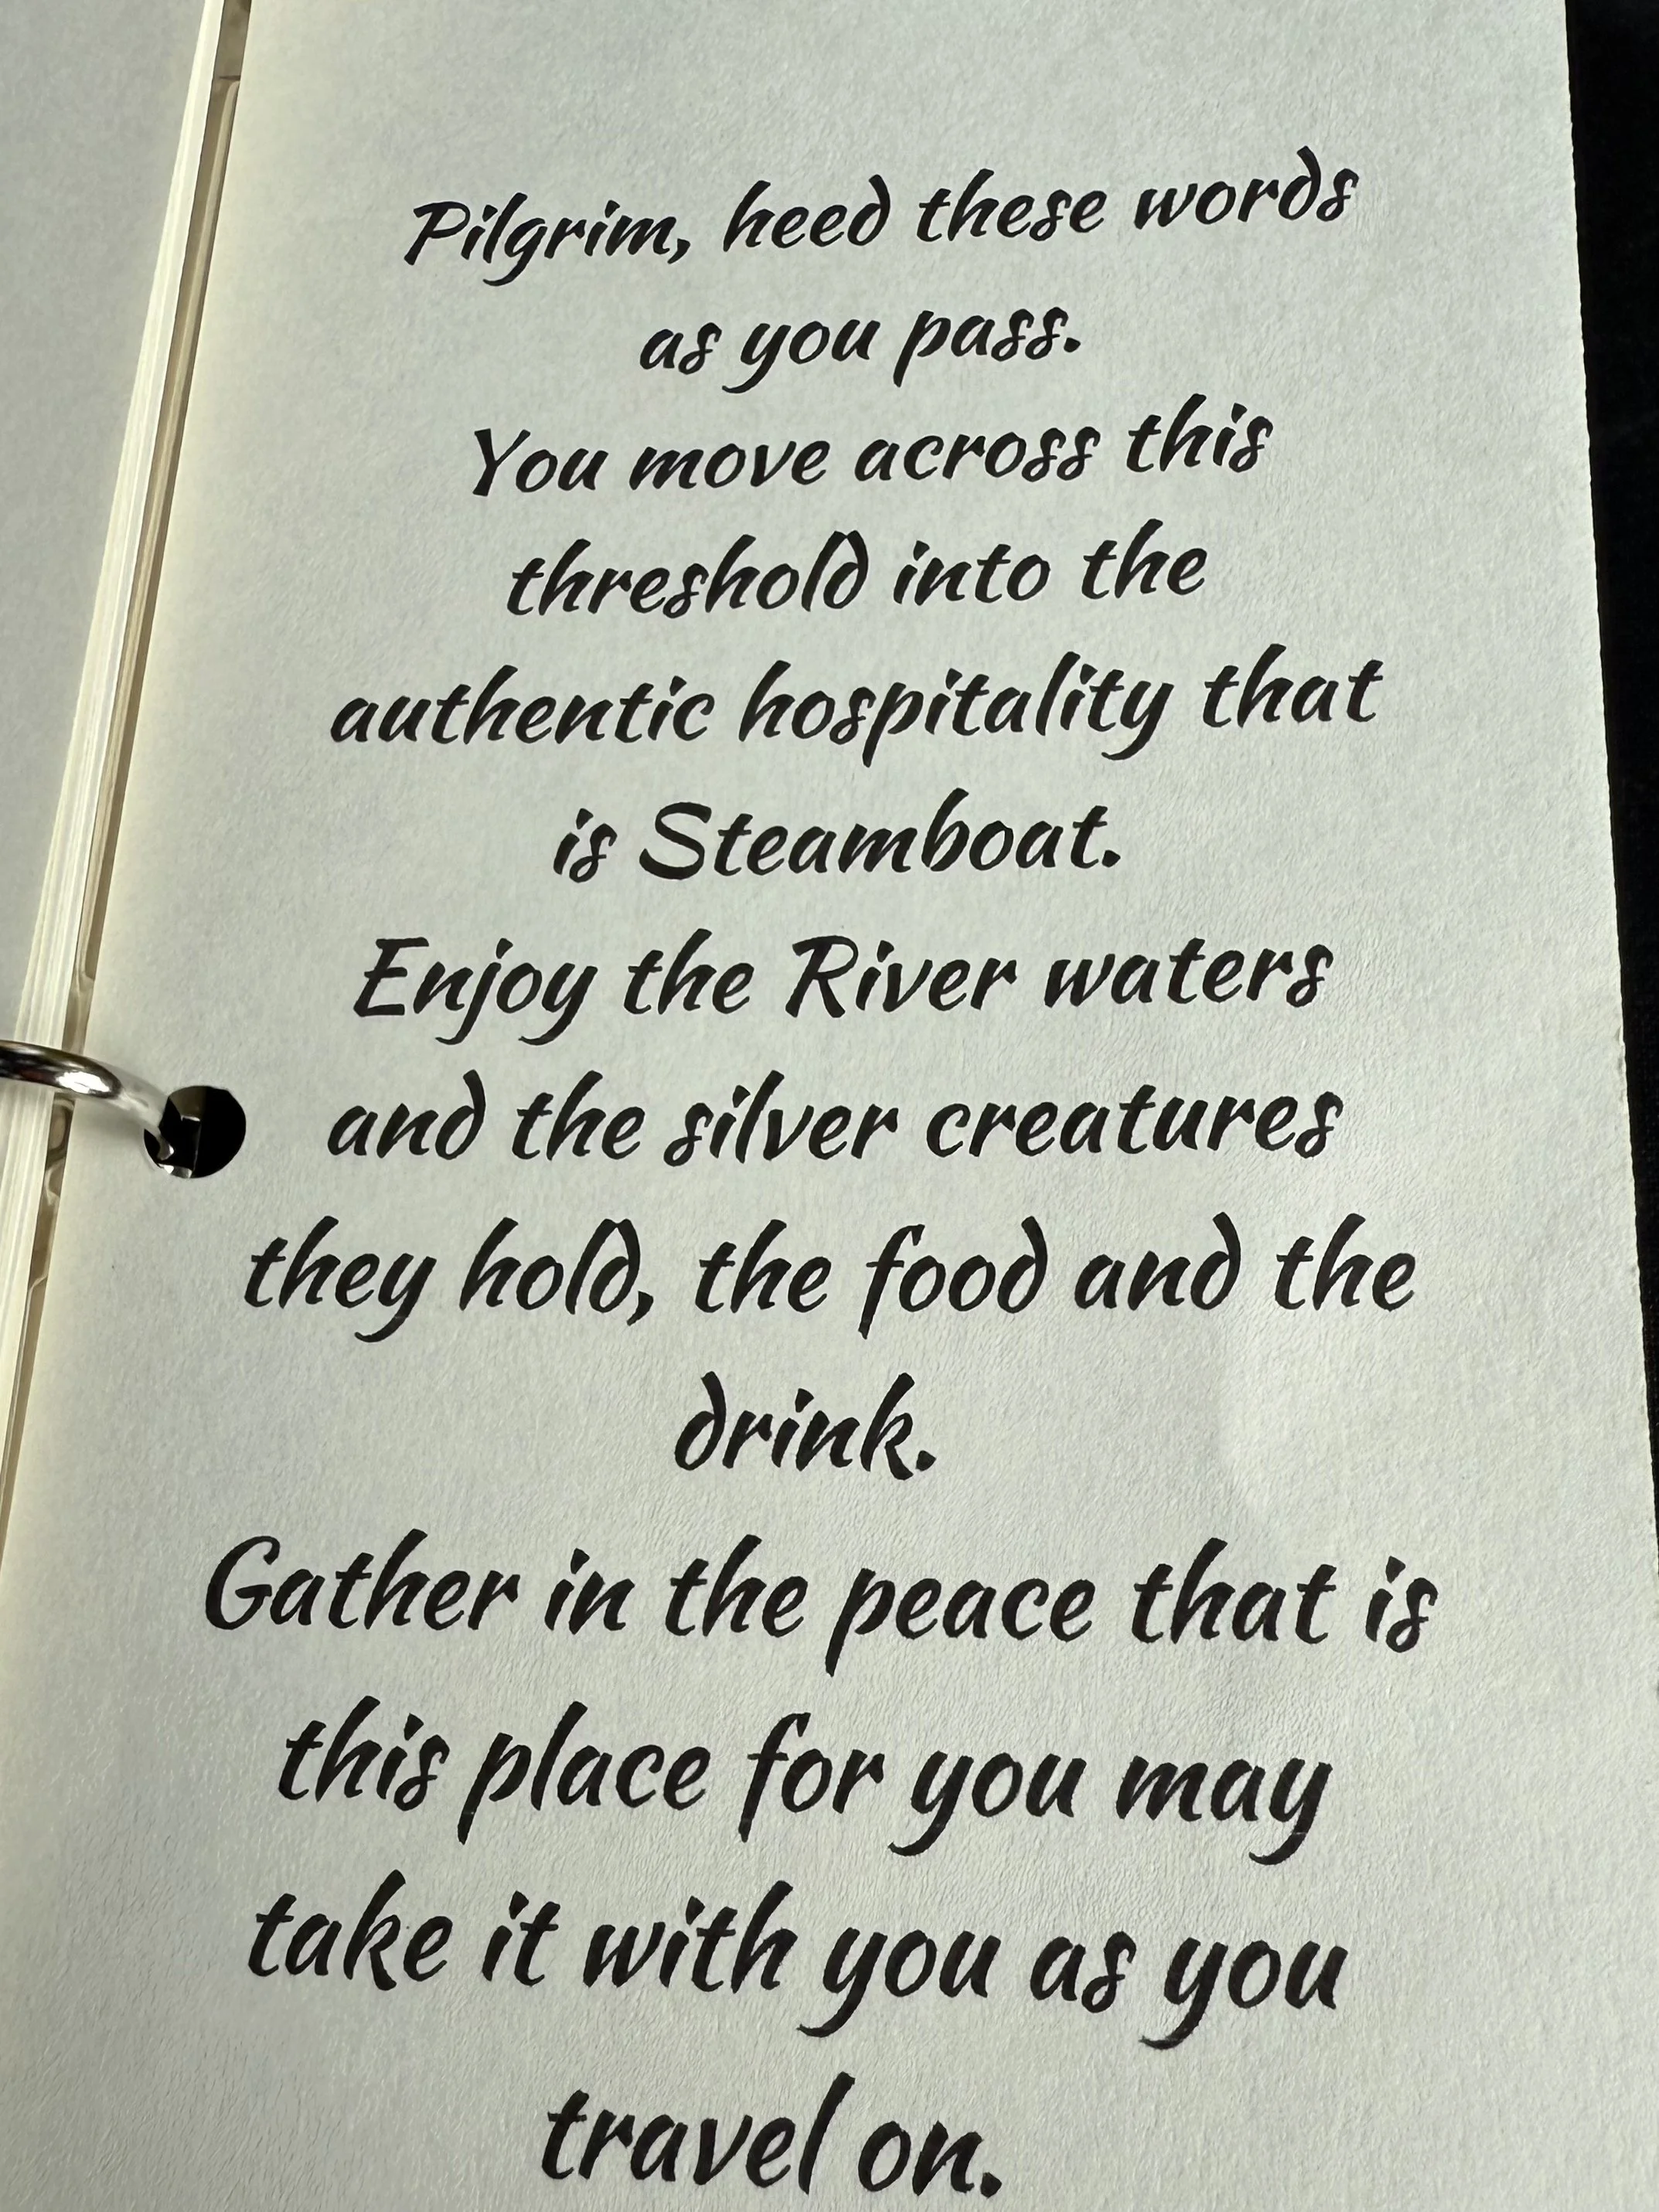 Pilgrim, heed these words
as you pass.
You move across this
threshold into the
authentic hospitality that
is Steamboat.
Enjoy the River waters
and the silver creatures
they hold, the food and the
drink.
Gather in the peace that is
this place for you may
take it with you as you
travel on.